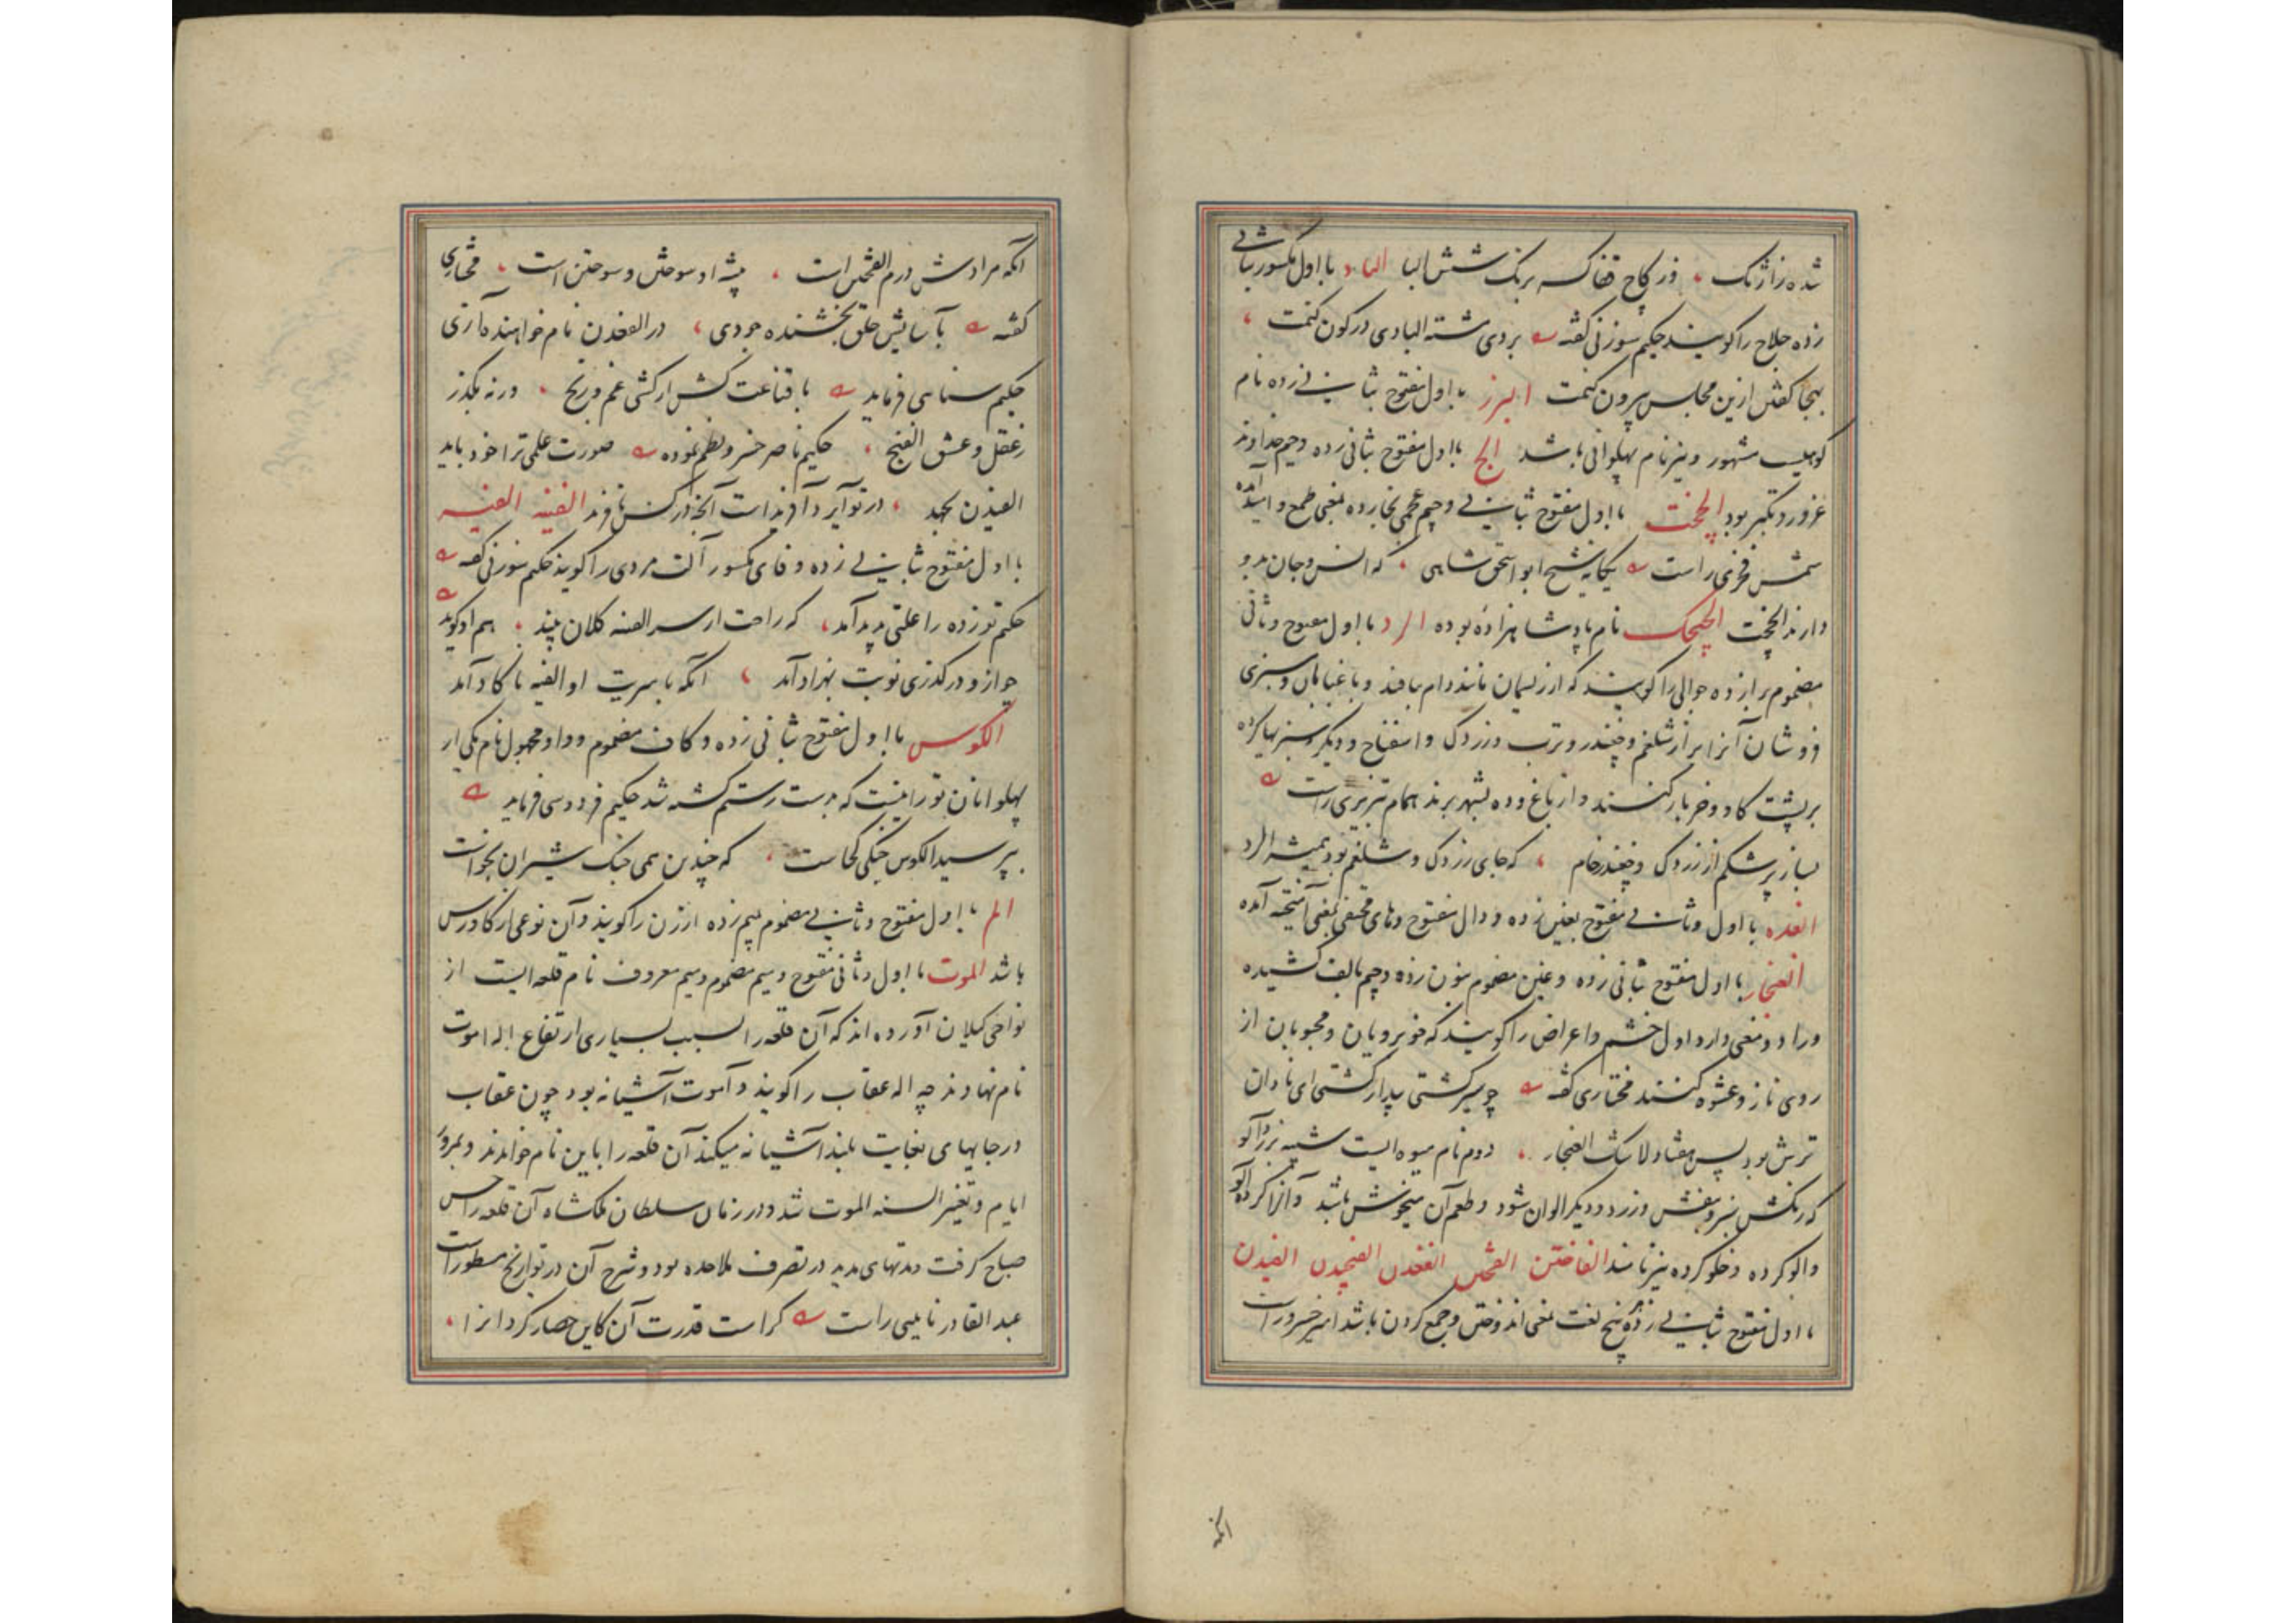 شده زا ژنک ، در کاخ قفاکسه برنک شش البا الباد با اول مکسور بثانی
زده حلاج را کویند حکیم سوزنی کفته بر دی شته البادی در کون کنمت ،
بهجا کفتن ازین مجلس بیرون کنمت البرز با اول مفتوح بثانی زده نام
کوهیست مشهور و نیز نام پهلوانی باشد الج با اول مفتوح بثانی زده و جیم خداوند
غرور و تکبر بود الچخت با اول مفتوح بثانی و جیم عجمی بخا زده بمعنی طمع و امید آمده
شمس فخری راست یکانه شیخ ابو اسحق شاهی ، که انس و جان بدو
دارند الچخت الچیچک نام پادشاهزاده بوده الرد با اول مفتوح و ثانی
مضموم برا زده جوالی را کویند که از ریسمان مانند دام بافند و باغبانان و سبزی
فروشان آنرا پر از شلغم و چغندر و ترب و زردک و اسفناج و دیکر سبزیها کرده
بر پشت کاو و خر بار کنند و از باغ و ده بشهر برند همام تبریزی راست
بساز پر شکم از زردک و چغندر خام ، که جای زردک و شلغم بود همیشه الرد
الغده با اول و ثانی مفتوح بغین زده و دال مفتوح و های مختفی بمعنی آمیخته آمده
الغنجار با اول مفتوح بثانی زده و غین مضموم بنون زده و جیم بالف کشیده
و را دو معنی دارد اول خشم و اعراض را کویند که خوبرویان و محبوبان از
روی ناز و عشوه کنند مختاری کفته چو سیر کشتی پدار کشتی ای نادان
ترش بود پس هفتاد لا شک الغنجار ، دوم نام میوه ایست شبیه بزردالو
که رنکش سبز و بنفش و زرد و دیکر الوان شود و طعم آن میخوش باشد و آنرا کرده الو
و الو کرده و خلو کرده نیز نامند الفاختن الفختن الفغدن الفنجیدن الفیدن
با اول مفتوح بثانی زده پنج لغت بمعنی اندوختن و جمع کردن باشد امیر خسرو راست
انکه
آنکه مرادش درم الفختن است ، پیشه او سوختن و سوختن است ، مختاری
کفته بآسایش خلق بخشنده جودی ، در الفغدن نام خواهنده آزی
حکیم سنایی فرماید با قناعت کش ار کشی غم و رنج ، ورنه بکذر
ز عقل و عشق الفنج ، حکیم ناصر خسرو نظم نموده صورت علمی ترا خود باید
الفیدن بجهد ، در تو ایزد آفریداست آنخ در کس نافرید الفینه الفیه
با اول مفتوح بثانی زده و فای مکسور آلت مردی را کویند حکیم سوزنی کفته
حکیم توز ده را علتی پدید آمد ، که راحت از سر الفینه کلان بیند ، هم او کوید
چو از و در کذری نوبت بهزاد آمد ، آنکه با سیرت او الفیه با کاد آمد
الکوس با اول مفتوح بثانی زده و کاف مضموم و واو مجهول نام یکی از
پهلوانان تورانیست که بدست رستم کشته شد حکیم فردوسی فرماید
بپرسید الکوس جنکی کجاست ، که چندین همی جنک شیران بخواست
الم با اول مفتوح و ثانی مضموم بمیم زده ارزن را کویند و آن نوعی از کاورس
باشد الموت با اول و ثانی مفتوح و میم مضموم و میم معروف نام قلعه ایست از
نواحی کیلان آورده اند که آن قلعه را بسبب بسیاری ارتفاع اله اموت
نام نهادند چه اله عقاب را کویند و آموت آشیانه بود چون عقاب
در جایهای بغایت بلند آشیانه میکند آن قلعه را باین نام خواندند و بمرور
ایام و تغییر السنه الموت شد و در زمان سلطان ملکشاه آن قلعه را حسن
صباح کرفت و مدتهای مدید در تصرف ملاحده بود و شرح آن در تواریخ مسطور است
عبد القادر نایینی راست کراست قدرت آن کاین حصار کرد انرا ،